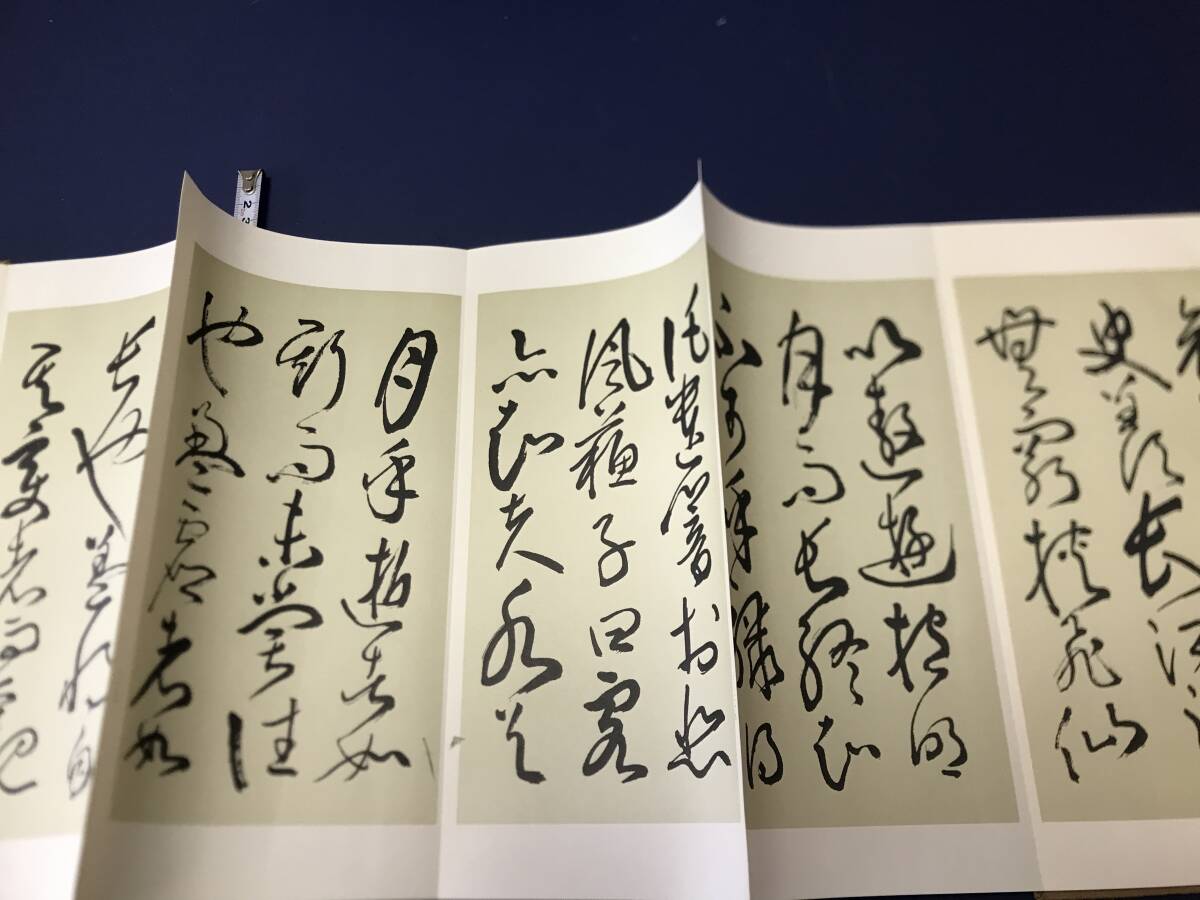 臾羨長江之
無窮挾飛仙
以遨遊抱明
月而長終知
不可乎驟得
託遺響於悲
風蘇子曰客
亦知夫水與
月乎逝者如
斯而未嘗往
也盈虛者如
長也蓋將自
其變者而觀
2
3